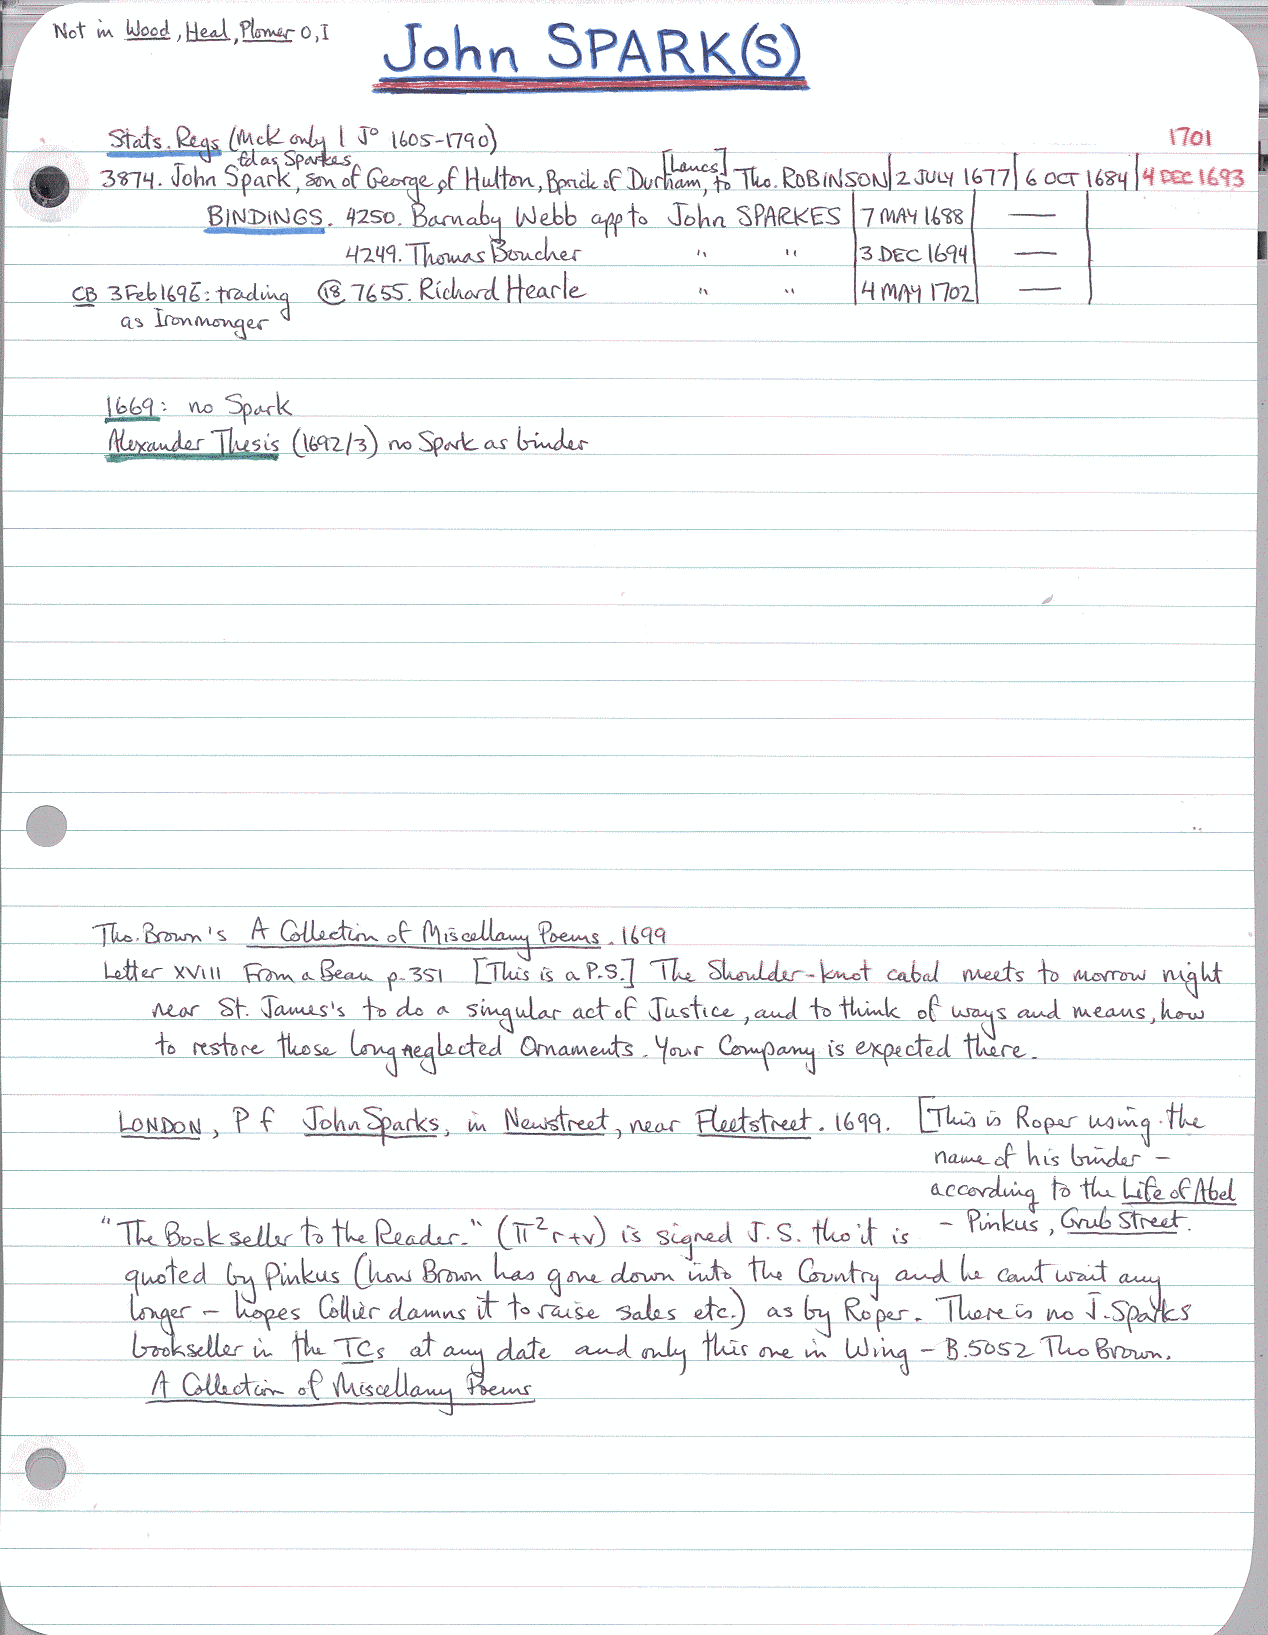 Not in Wood, Heal, Plomer O, I
John SPARK(S)
Stats. Regs (McK only 1 Jº 1605-1790)
1701
fd as Sparkes
[Lancs]
3874. John Spark, son of George of Hulton, Bprick of Durham, to Tho. ROBINSON | 2 JULY 1677 | 6 OCT 1684 | 4 DEC 1693
BINDINGS. 4250. Barnaby Webb app to John SPARKES | 7 MAY 1688 | —
4249. Thomas Boucher " " | 3 DEC 1694 | —
CB 3 Feb 1696: trading (18) 7655. Richard Hearle " " | 4 MAY 1702 | —
as Ironmonger
1669: no Spark
Alexander Thesis (1692/3) no Spark as binder
Tho. Brown's A Collection of Miscellany Poems. 1699
Letter XVIII From a Beau p. 351 [This is a P.S.] The Shoulder-knot cabal meets to morrow night
near St. James's to do a singular act of Justice, and to think of ways and means, how
to restore those long neglected Ornaments. Your Company is expected there.
LONDON, P f John Sparks, in Newstreet, near Fleetstreet. 1699. [This is Roper using the
name of his binder –
according to the Life of Abel
– Pinkus, Grub Street.
"The Bookseller to the Reader." (π²r+v) is signed J.S. tho it is
quoted by Pinkus (how Brown has gone down into the Country and he cant wait any
longer – hopes Collier damns it to raise sales etc.) as by Roper. There is no J. Sparks
bookseller in the TCs at any date and only this one in Wing – B.5052 Tho Brown.
A Collection of Miscellany Poems